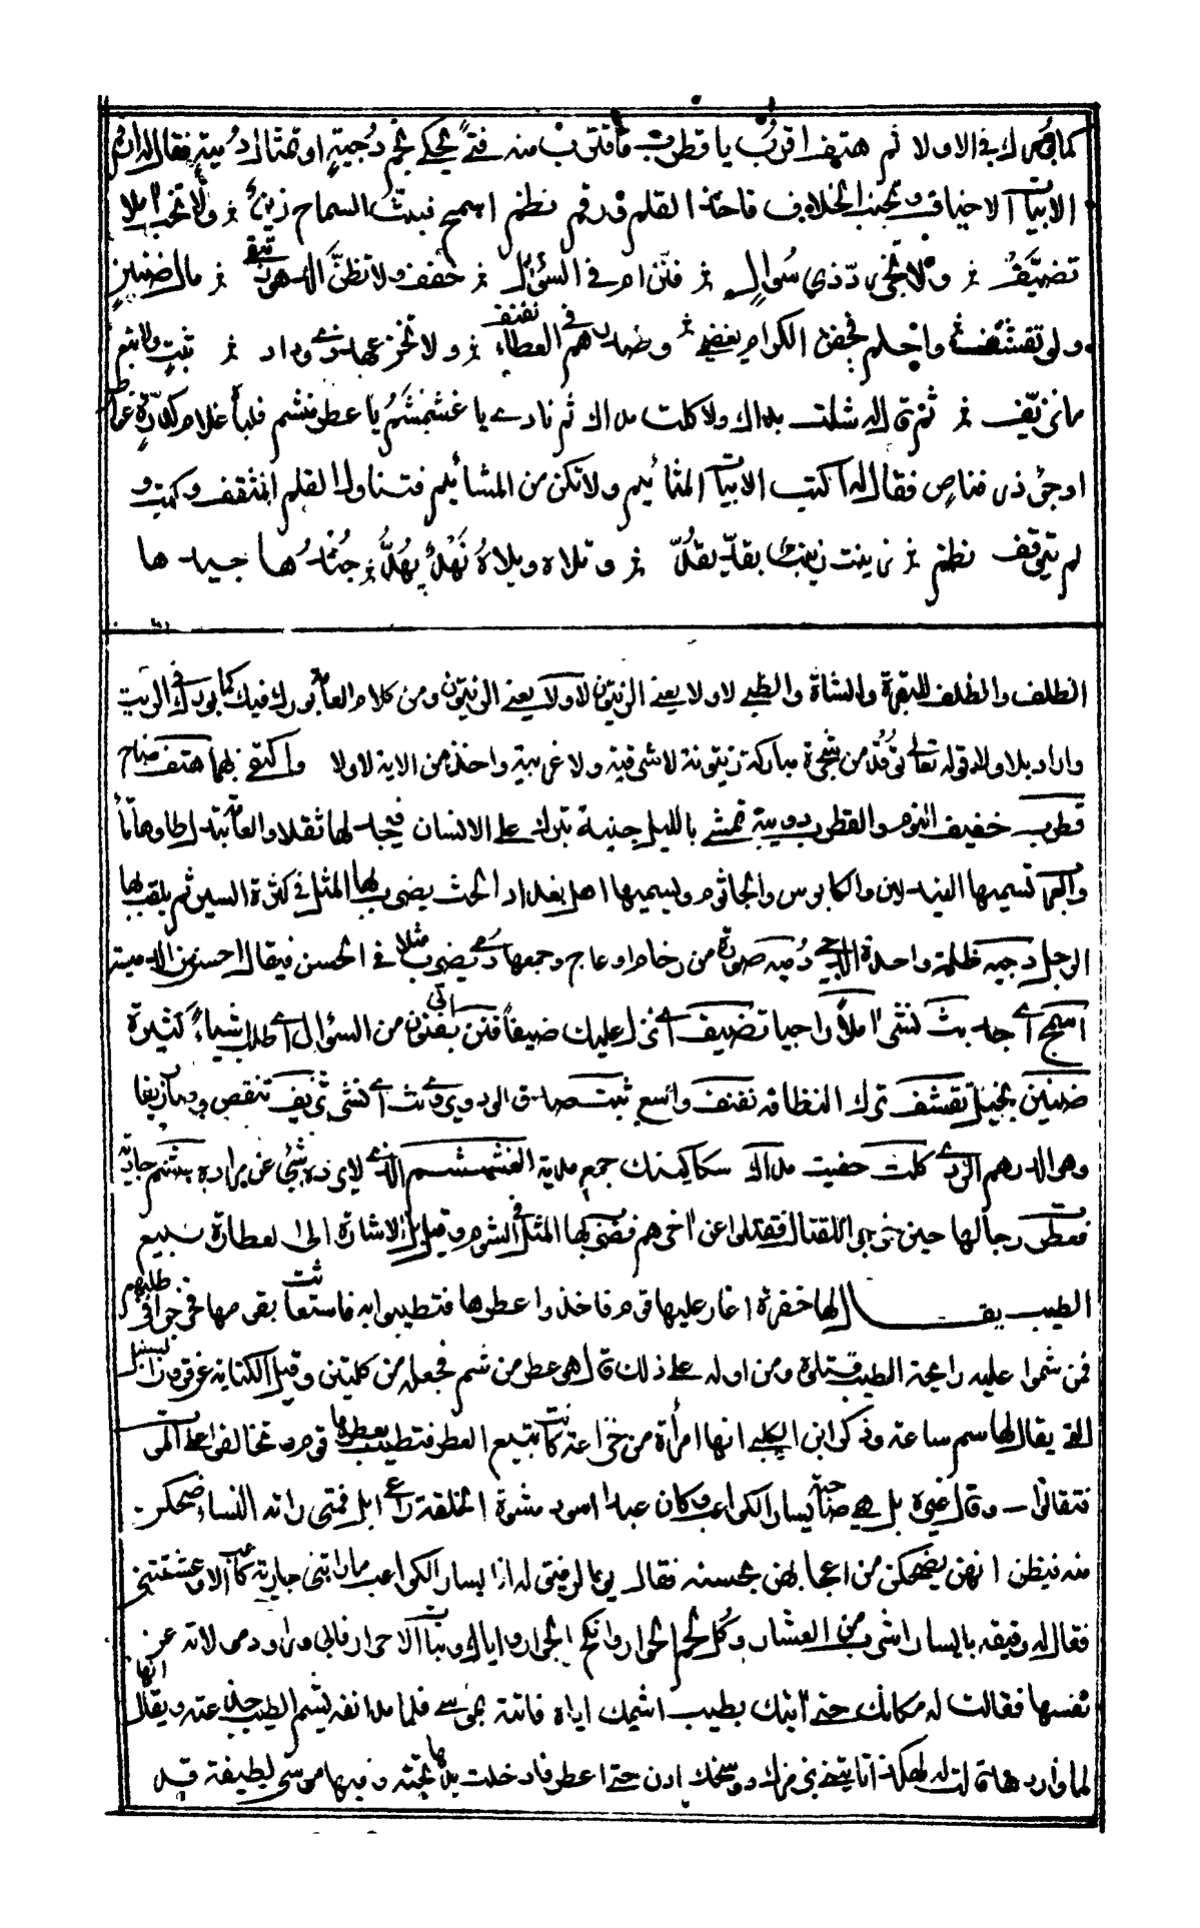 كما بورك في الاولا ثم هتف اقرب يا قطرب فاقترب منه فتًى يحكي نجم دُجيةٍ او تمثال دُميةٍ فقال له ارقم
الابيات الاخياف وتجنب الخلاف فاخذ القلم ورقم نظم اسمح فبثّ السماح زينٌ ولا تخب املا
تضيّف ولا تجز ردّ ذي سؤالٍ فنّن ام في السؤال خفف ولا تظنّ الدهور تبقي مال ضنينٍ
ولو تقشّف واحلم فجفن الكرام يغضي وصدرهم في العطاء نفنف ولا تخن عهد ذي وداد ثبت ولا تبغ
ما تزيّف ثم قال له لا شلت يداك ولا كلت مداك ثم نادى يا غشمشم يا عطر منشم فلباه غلام كدرّة غواص
او جؤذر قناص فقال له اكتب الابيات المتائيم ولا تكن من المشائيم فتناول القلم المثقف وكتب و
لم يتوقف نظم زينت زينبٌ بقدّ يقدّ وتلاه ويلاه نهدٌ يهدّ جندها جيدها
الظلف والظلف للبقرة والشاة والظبي لا ولا يعني الزيتون لا ولا يعني الزيتون ومن كلام العامة بورك فيك كما بورك في الزيت
واراد بلا ولا قوله تعالى توقد من شجرة مباركة زيتونة لا شرقية ولا غربية واخذ من الاية لا ولا واكتفى بهما هتف صاح
قطرب خفيف النوم والقطرب دويبة تمشي بالليل جنية تبرك على الانسان فيجد لها ثقلا والعامة
تسميها الفيدلين والكابوس والجاثوم ويسميها اهل بغداد الحث يضرب بها المثل في كثرة السير ثم يلقب بها
الرجل دجية ظلمة واحدة الدجى دمية صورة من رخام او عاج وجمعها دمى يضرب مثلا في الحسن فيقال احسن من الدمية
اسمح اي جد بث نشر املا راجيا تضيف اي نزل عليك ضيفاً فنن اتى بفنون من السؤال اي طلب اشياء كثيرة
ضنين بخيل تقشف ترك النظافة نفنف واسع ثبت صادق الود وبث اي نشر تزيف تنقص
وهي الدرهم الردي كلت حفيت مداك سكاكينك جمع مدية الغشمشم الذي لا يرده شيء عن مراده منشم جارية
فعطرت رجالها حين خرجوا للقتال فقتلوا عن اخرهم فضرب بها المثل في الشوم وقيل بل الاشارة الى عطارة تبيع
الطيب يقال لها خفرة اغار عليها قوم فاخذوا عطرها فتطيبوا به فاستغاثت بقومها فخرجوا في طلبهم
فمن شموا عليه رائحة الطيب قتلوه ومن اوله على ذلك قال هو عطر من شم فجعله من كلمتين وقيل الكناية عن قرون السنبل
التي يقال لها سم ساعة وذكر ابن الكلبي انها امرأة من خزاعة كانت تبيع العطر فتطيب بعطرها قوم وتحالفوا على الموت
فتفانوا وقال غيره بل هي صاحبة يسار الكواعب وكان عبدا اسود مشوه الخلقة راعي ابل فمتى راته النساء ضحكن
منه فيظن انهن يضحكن من اعجابهن بحسنه فقال يوما لرفيق له انا يسار الكواعب ما راتني جارية كاعب الا وعشقتني
فقال له رفيقه يا يسار اشرب من لبن العشار وكل لحم الحوار وانكح الجوار واياك وبنات الاحرار فابى وراود مولاته عن
نفسها فقالت له مكانك حتى اتيك بطيب اشمك اياه فاتته بموسى فلما مد انفه ليشم الطيب جدعته ويقال انها
لما راودها قالت له ادن حتى اعطرك فادخلت يدها تحته وفيها موسى لطيفة قيل